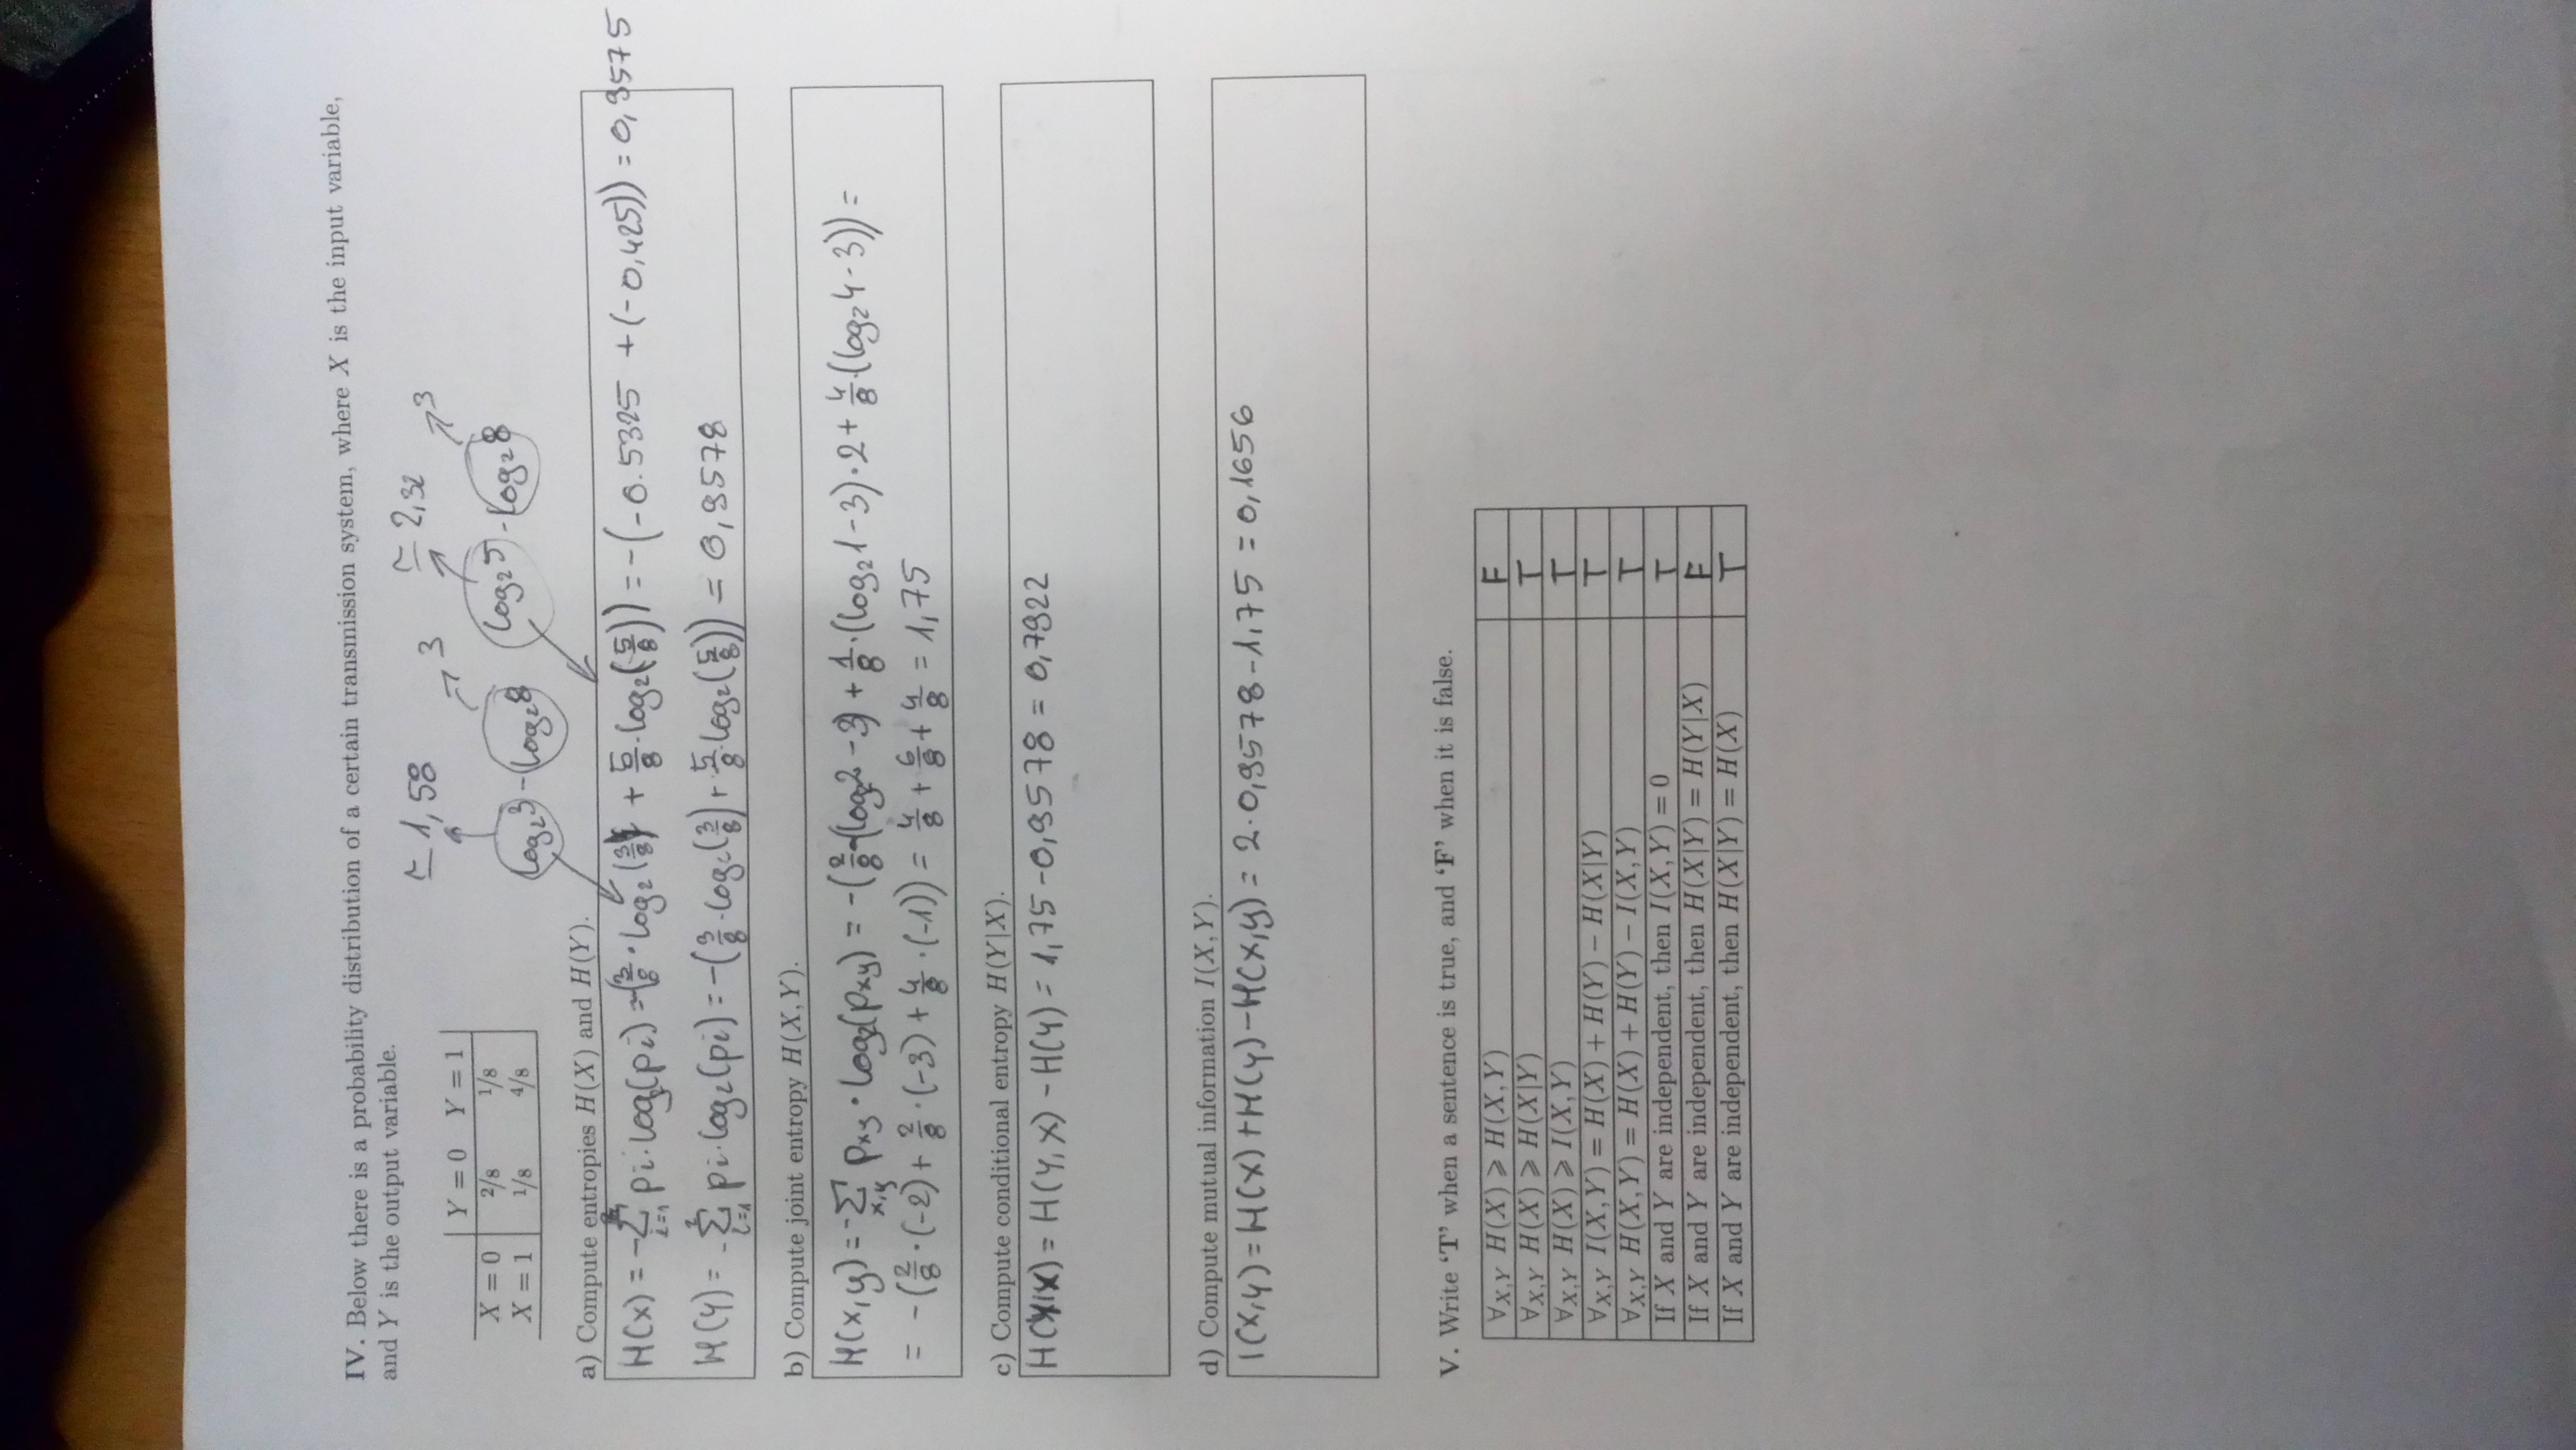 IV. Below there is a probability distribution of a certain transmission system, where X is the input variable,
and Y is the output variable.
≃ 1,58 3 ≃ 2,32 3
Y = 0 Y = 1
X = 0 2/8 1/8
X = 1 1/8 4/8
log₂3 - log₂8 log₂5 - log₂8
a) Compute entropies H(X) and H(Y).
H(x) = -∑ i=1 pi·log₂(pi) = -(3/8 · log₂(3/8) + 5/8·log₂(5/8)) = -(-0.5325 + (-0,425)) = 0,9575
H(Y) = -∑ i=1 2 pi·log₂(pi) = -(3/8·log₂(3/8) + 5/8 log₂(5/8)) = 0,9578
b) Compute joint entropy H(X,Y).
H(x,y) = -∑ x,y pxy · log₂(pxy) = -(2/8·(log₂2 - 3) + 1/8·(log₂1-3)·2 + 4/8·(log₂4-3)) =
= -(2/8·(-2) + 2/8·(-3) + 4/8·(-1)) = 4/8 + 6/8 + 4/8 = 1,75
c) Compute conditional entropy H(Y|X).
H(Y|X) = H(Y,X) - H(Y) = 1,75 - 0,9578 = 0,7922
d) Compute mutual information I(X,Y).
I(X,Y) = H(X) + H(Y) - H(X,Y) = 2·0,9578 - 1,75 = 0,1656
V. Write ‘T’ when a sentence is true, and ‘F’ when it is false.
∀X,Y H(X) ⩾ H(X,Y) F
∀X,Y H(X) ⩾ H(X|Y) T
∀X,Y H(X) ⩾ I(X,Y) T
∀X,Y I(X,Y) = H(X) + H(Y) − H(X|Y) T
∀X,Y H(X,Y) = H(X) + H(Y) − I(X,Y) T
If X and Y are independent, then I(X,Y) = 0 T
If X and Y are independent, then H(X|Y) = H(Y|X) F
If X and Y are independent, then H(X|Y) = H(X) T